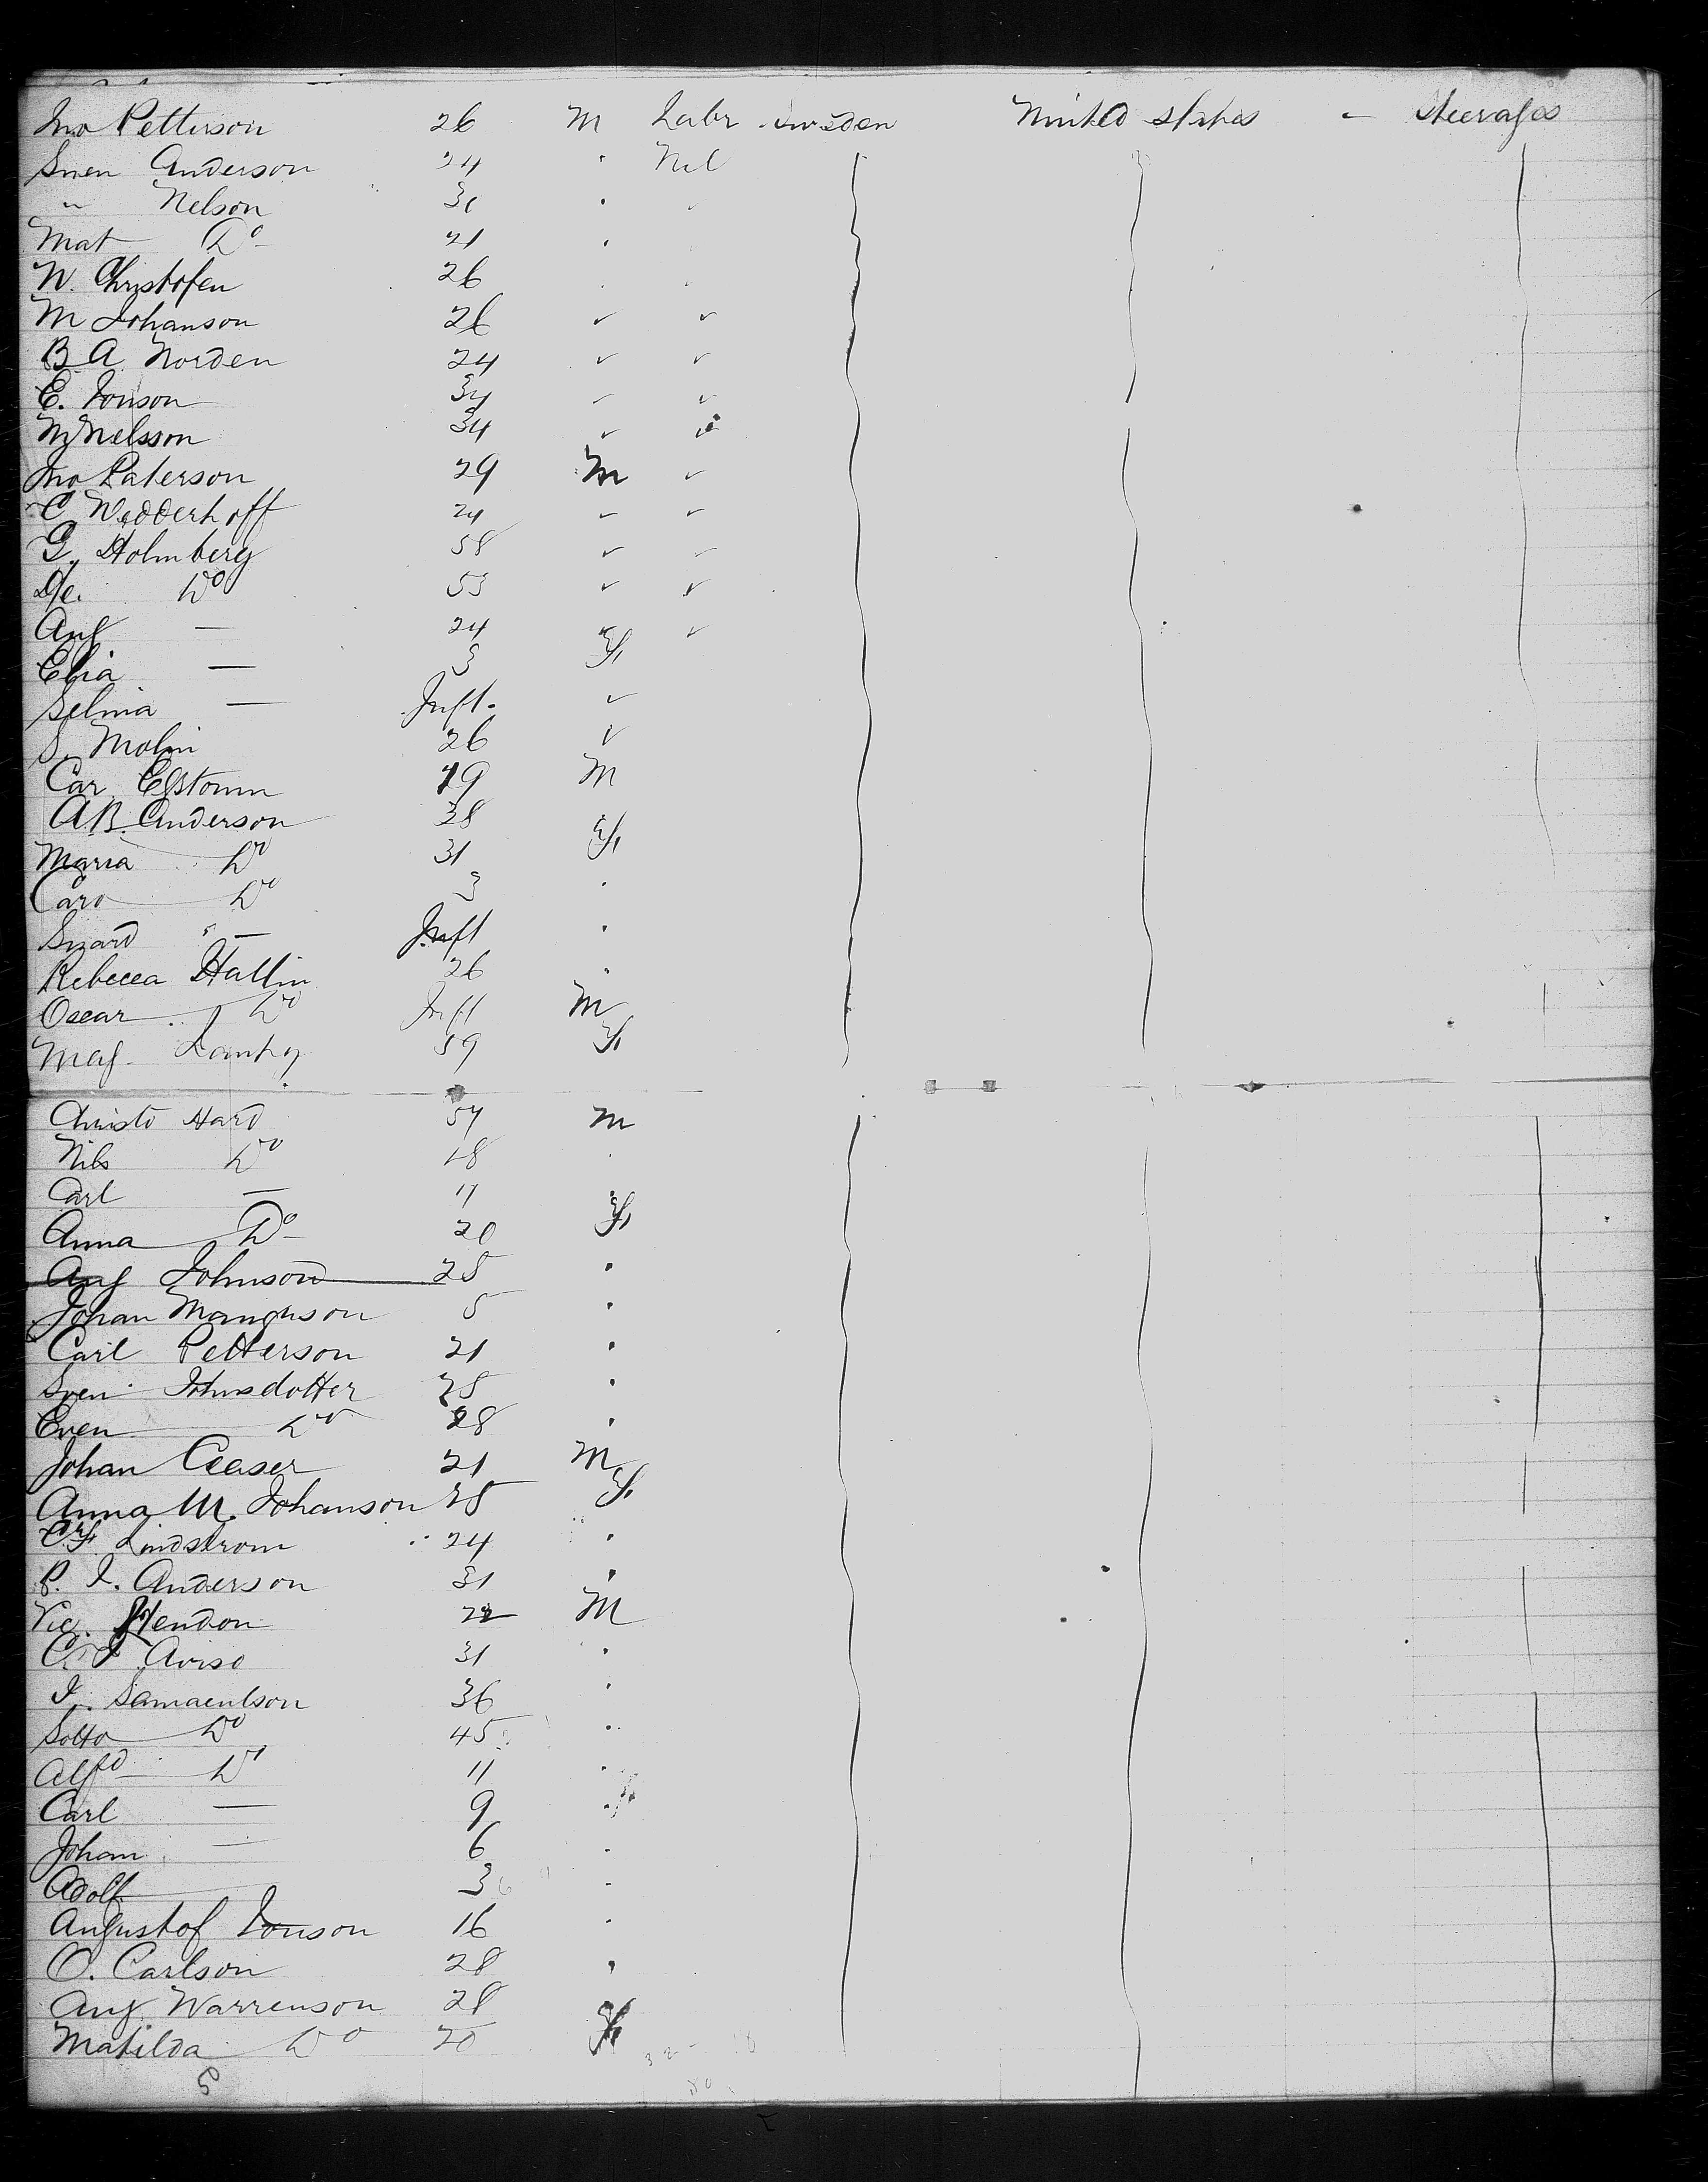 Jno Petterson 26 M Labr Sweden United States - Steerages
Sven Anderson 24 " Nil
" Nelson 30 "
Mat Do 21 "
N. Christofen 26
M Johanson 26 " "
B A Norden 24 " "
E. Jonson 34 " "
M Nelsson 34 " "
Jno Paterson 29 M "
C Wedderhoff 24 " "
G. Holmberg 58 " "
Do 53 " "
Aug — 24 " "
— 3 F
Selma — Inft. "
S. Molin 26 "
Car 19 M
A.B. Anderson 38
Maria Do 31 F
Caro Do 3 "
" — Inft "
Rebecca Hallin 26 "
Oscar Do Inft M
59 F
Christo Hard 54 M
Nils Do 18
Carl — 11 "
Anna Do 20 F
Aug Johnson 25 "
Johan Mangnson 5 "
Carl Petterson 21 "
Sven Johnsdotter 25 "
Even Do 28 "
Johan Ceaser 21 M
Anna M. Johanson 25 F
C.F. Lindstrom 24 "
P. J. Anderson 31 "
Vic. Hendon 22 M
31 "
J. Samaenlson 36 "
Sotto Do 45 "
Alfd Do 11 "
Carl — 9 "
Johan — 6 "
Adolf 3 "
Augustof Jonson 16 "
O. Carlson 28 "
Aug Warrenson 28
Matilda Do 20 F